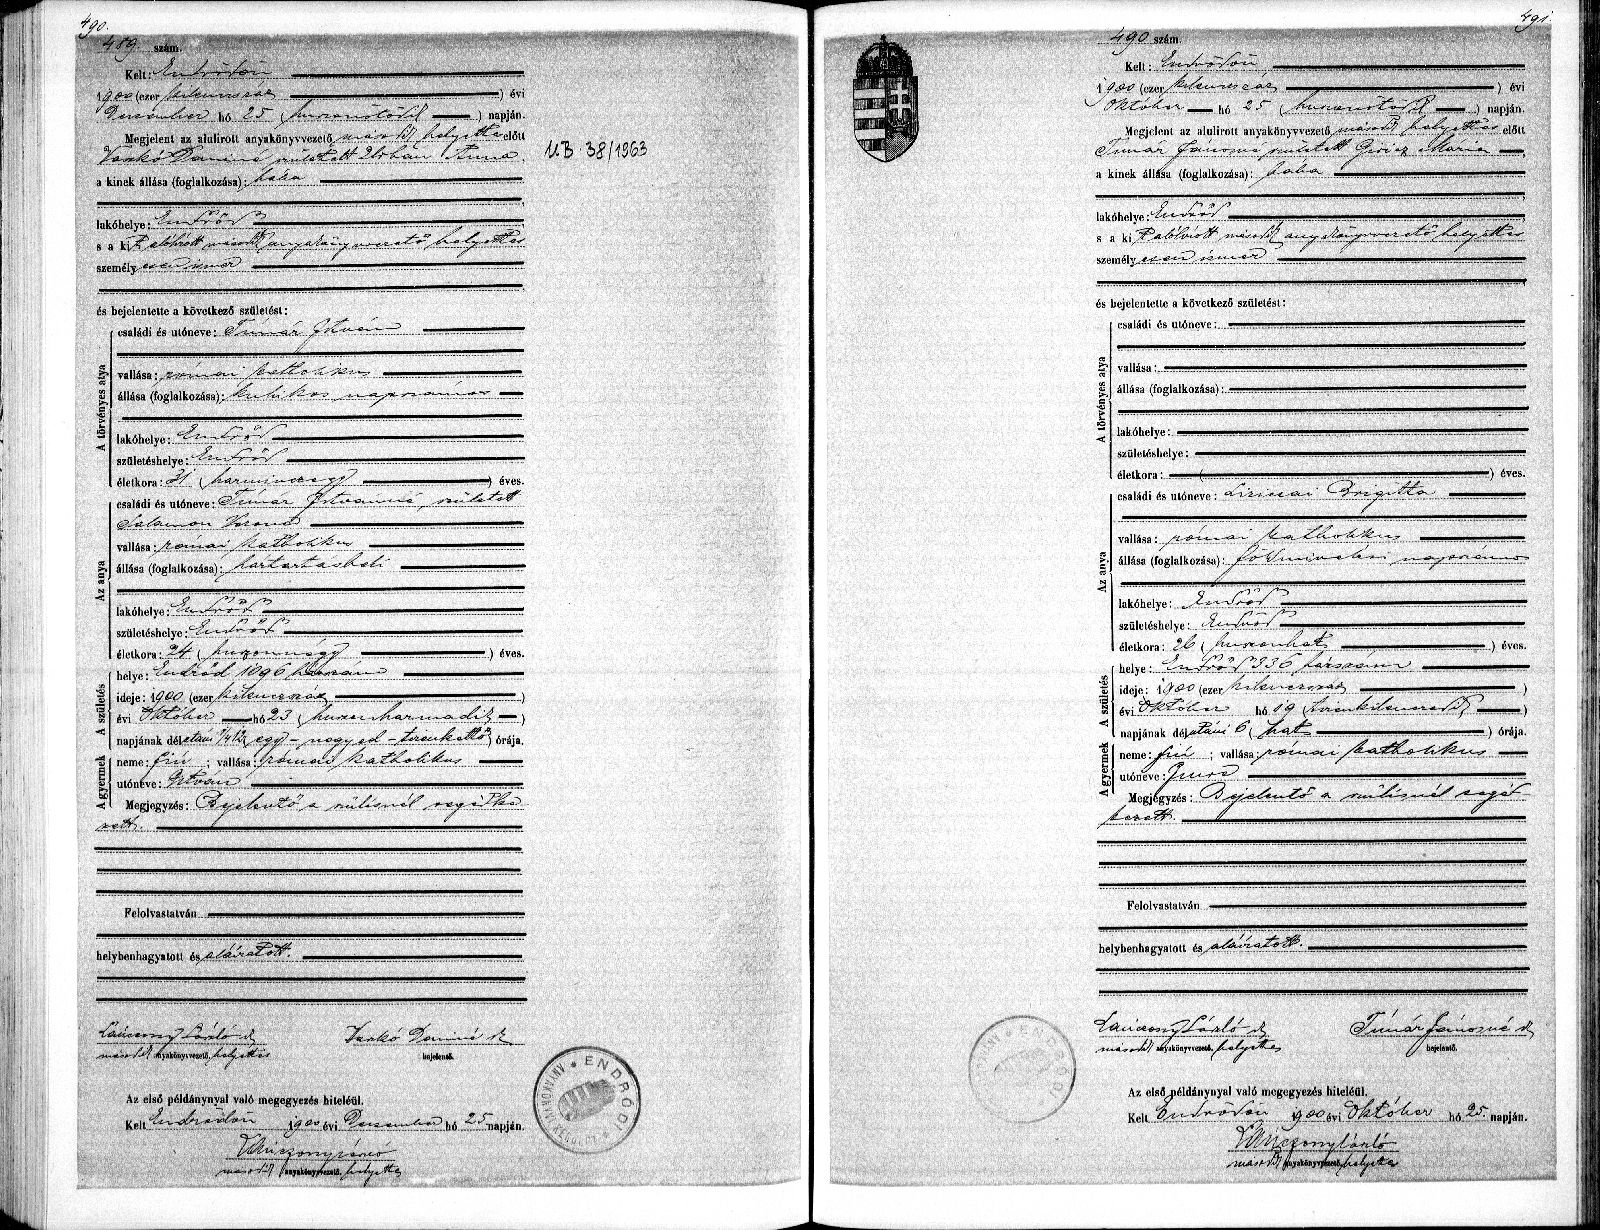 490.
489. szám.
Kelt: Endrődön
1900 (ezer kilencszáz) évi
December hó 25 (huszonötödik) napján.
Megjelent az alulirott anyakönyvvezető másodh. helyettes előtt
Vaskó Dánielné született Anna,
a kinek állása (foglalkozása): bába
lakóhelye: Endrőd
s a kit alólirott másodh. anyakönyvvezető helyettes
személyesen ismer
és bejelentette a következő születést:
A törvényes atya
családi és utóneve: Tímár István
vallása: római katholikus
állása (foglalkozása): kubikos napszámos
lakóhelye: Endrőd
születéshelye: Endrőd
életkora: 31 (harminczegy) éves.
Az anya
családi és utóneve: Tímár Istvánné, született
Salamon Verona
vallása: római katholikus
állása (foglalkozása): háztartásbeli
lakóhelye: Endrőd
születéshelye: Endrőd
életkora: 24 (huszonnégy) éves.
A születés
helye: Endrőd 1096 házszám
ideje: 1900 (ezer kilencszáz)
évi Október hó 23 (huszonharmadik)
napjának délutáni 1/4 12 (egy-negyed-tizenkettő) órája.
A gyermek
neme: fiú ; vallása: római katholikus
utóneve: István
Megjegyzés: Bejelentő a szülésnél segédke
zett.
Felolvastatván
helybenhagyatott és aláiratott.
László
másodh. anyakönyvvezető, helyettes
Vaskó Dánielné
bejelentő.
Az első példánynyal való megegyezés hiteléül.
Kelt Endrődön 1900 évi December hó 25 napján.
László
másodh. anyakönyvvezető, helyettes
UB 38/1963
ENDRŐDI
491.
490 szám.
Kelt: Endrődön
1900 (ezer kilenczszáz) évi
Október hó 25 (huszonötödik) napján.
Megjelent az alulirott anyakönyvvezető másodh. helyettes előtt
Tímár Jánosné született Mária
a kinek állása (foglalkozása): bába
lakóhelye: Endrőd
s a kit alólirott másodh. anyakönyvvezető helyettes
személyesen ismer
és bejelentette a következő születést:
A törvényes atya
családi és utóneve:
vallása:
állása (foglalkozása):
lakóhelye:
születéshelye:
életkora: ( ) éves.
Az anya
családi és utóneve: Brigitta
vallása: római katholikus
állása (foglalkozása): földmivelési napszámos
lakóhelye: Endrőd
születéshelye: Endrőd
életkora: 26 (huszonhat) éves.
A születés
helye: Endrőd 336 házszám
ideje: 1900 (ezer kilencszáz)
évi Október hó 19 (tizenkilenczedik)
napjának délutáni 6 (hat) órája.
A gyermek
neme: fiú ; vallása: római katholikus
utóneve:
Megjegyzés: Bejelentő a szülésnél segéd-
kezett.
Felolvastatván
helybenhagyatott és aláiratott.
László
másodh. anyakönyvvezető, helyettes
Tímár Jánosné
bejelentő.
Az első példánynyal való megegyezés hiteléül.
Kelt Endrődön 1900 évi Október hó 25. napján.
László
másodh. anyakönyvvezető, helyettes
ENDRŐDI